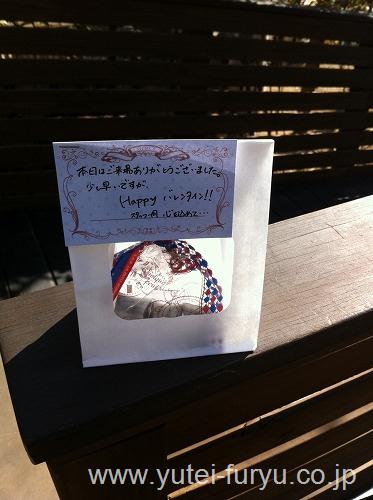 本日はご来場ありがとうございました。
少し早いですが、
Happy バレンタイン!!
スタッフ一同 心を込めて…
www.yutei-furyu.co.jp